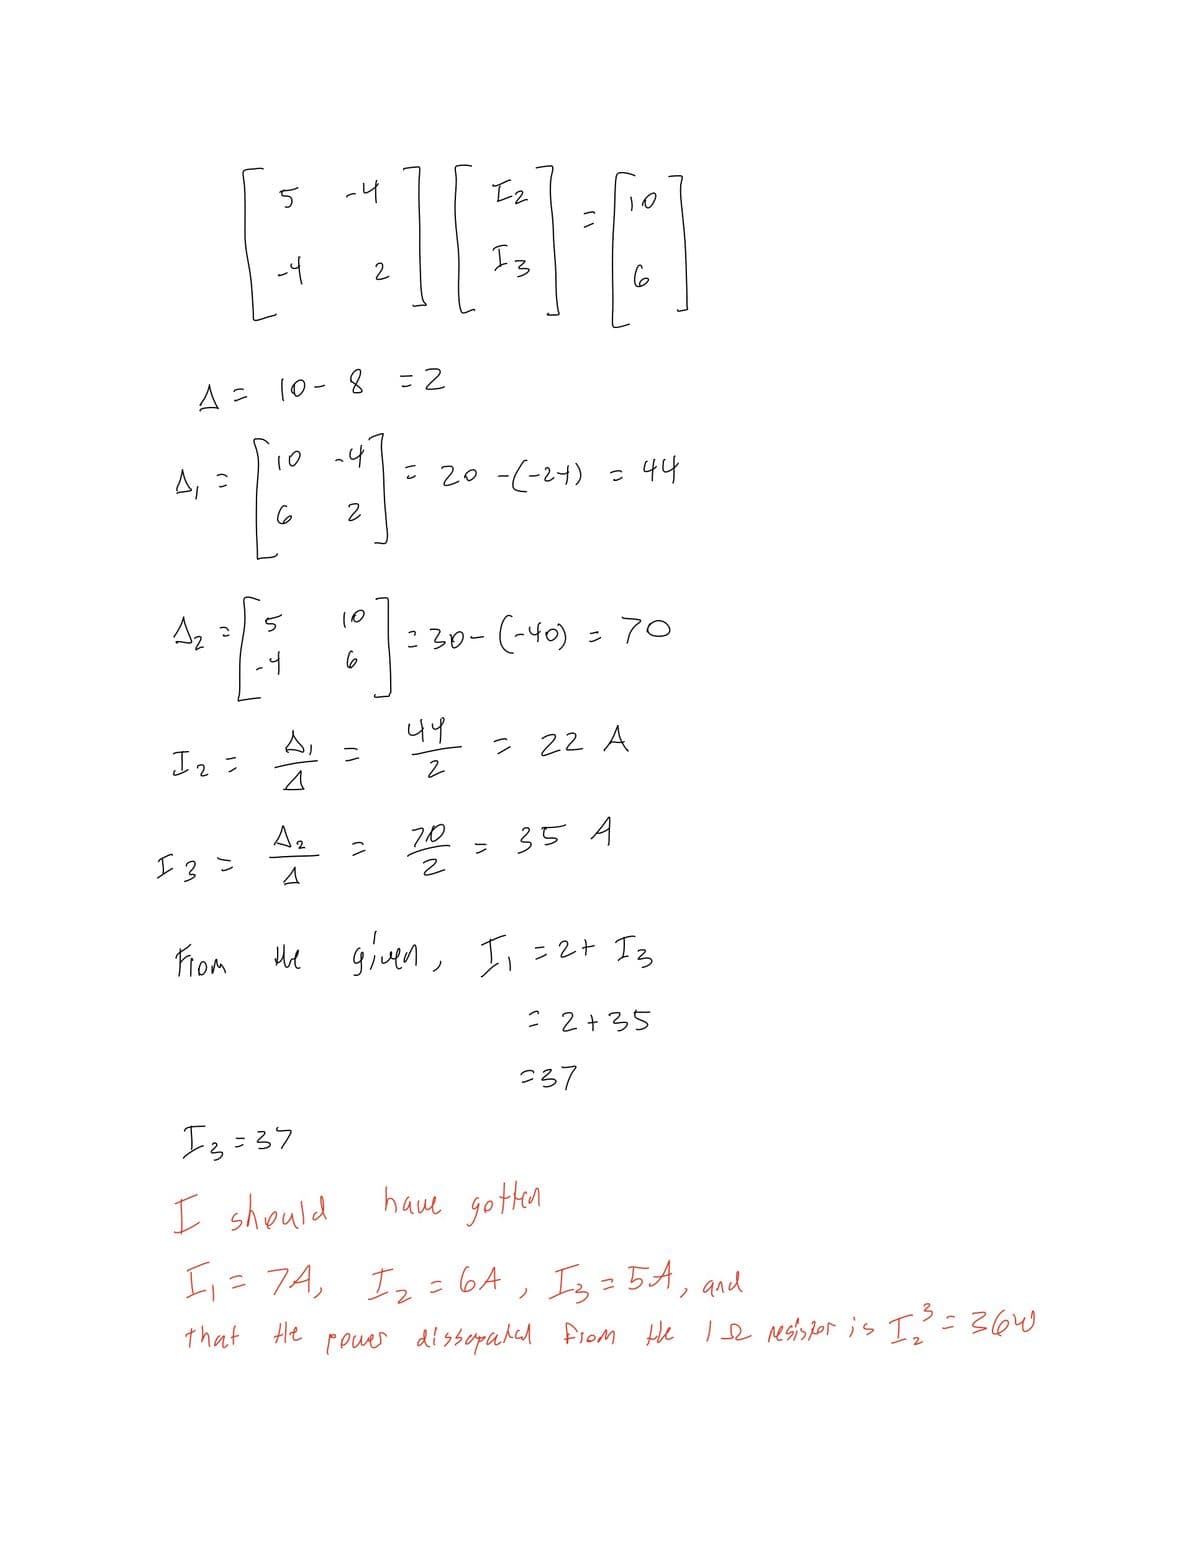 [ 5 -4 ] [ I2 ] = [ 10 ]
[ -4 2 ] [ I3 ] [ 6 ]
Δ = 10 - 8 = 2
Δ1 = [ 10 -4 ] = 20 -(-24) = 44
[ 6 2 ]
Δ2 = [ 5 10 ] = 30 - (-40) = 70
[ -4 6 ]
I2 = Δ1/Δ = 44/2 = 22 A
I3 = Δ2/Δ = 70/2 = 35 A
From the given, I1 = 2 + I3
= 2 + 35
= 37
I3 = 37
I should have gotten
I1 = 7A, I2 = 6A, I3 = 5A, and
that the power dissapated from the 1 Ω resistor is I2^3 = 36W